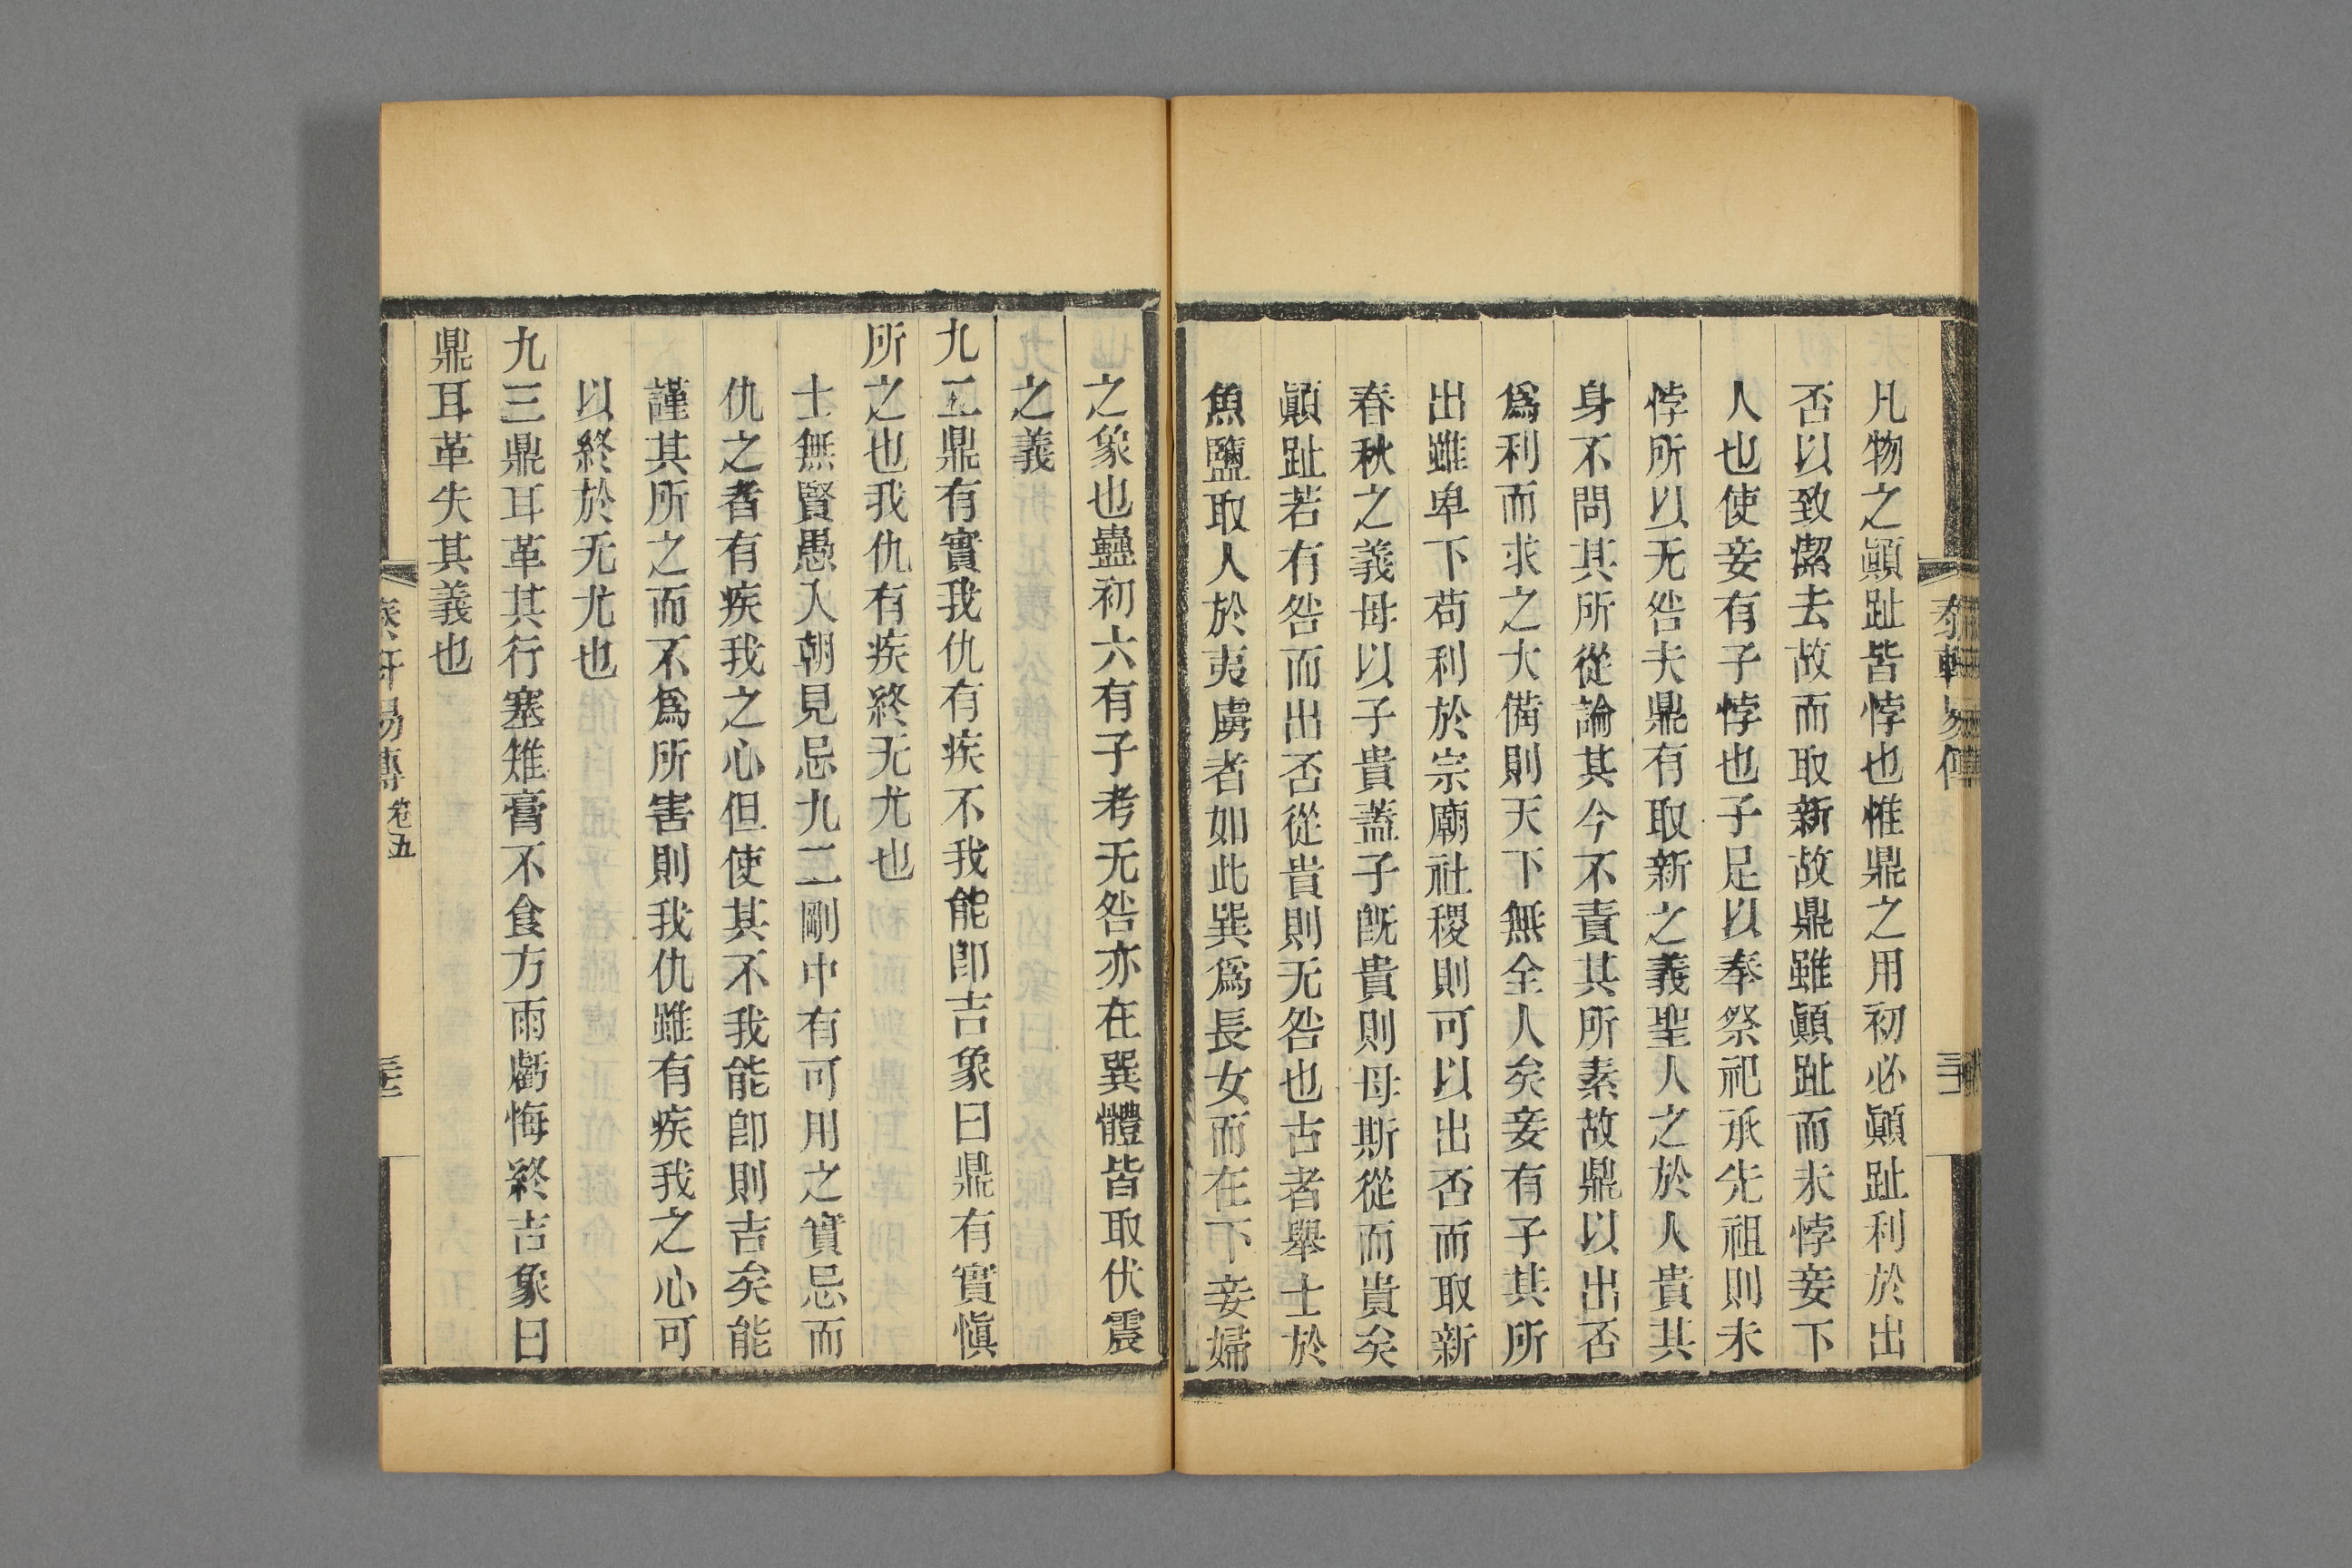 凡物之顚趾皆悖也惟鼎之用初必顚趾利於出
否以致潔去故而取新故鼎雖顚趾而未悖妾下
人也使妾有子悖也子足以奉祭祀承先祖則未
悖所以无咎夫鼎有取新之義聖人之於人貴其
身不問其所從論其今不責其所素故鼎以出否
爲利而求之大備則天下無全人矣妾有子其所
出雖卑下苟利於宗廟社稷則可以出否而取新
春秋之義母以子貴蓋子旣貴則母斯從而貴矣
顚趾若有咎而出否從貴則无咎也古者舉士於
魚鹽取人於夷虜者如此巽爲長女而在下妾婦
之象也蠱初六有子考无咎亦在巽體皆取伏震
之義
九二鼎有實我仇有疾不我能卽吉象曰鼎有實愼
所之也我仇有疾終无尤也
士無賢愚入朝見忌九二剛中有可用之實忌而
仇之者有疾我之心但使其不我能卽則吉矣能
謹其所之而不爲所害則我仇雖有疾我之心可
以終於无尤也
九三鼎耳革其行塞雉膏不食方雨虧悔終吉象曰
鼎耳革失其義也
易傳 卷五